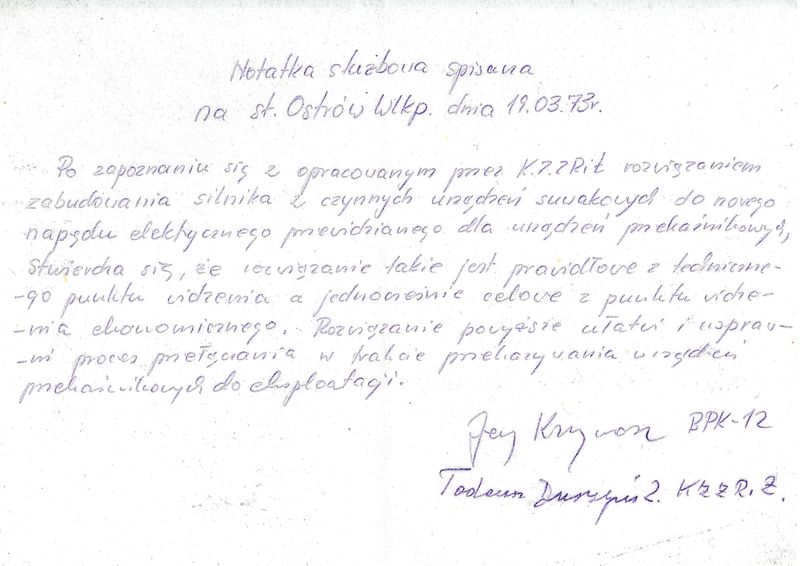 Notatka służbowa spisana
na st. Ostrów Wlkp. dnia 19.03.73r.
Po zapoznaniu się z opracowanym przez K.Z.Z.Rit rozwiązaniem
zabudowania silnika z czynnych urządzeń suwakowych do nowego
napędu elektrycznego przewidzianego dla urządzeń przekaźnikowych,
Stwierdza się, że rozwiązanie takie jest prawidłowe z techniczne-
-go punktu widzenia a jednocześnie celowe z punktu widze-
-nia ekonomicznego. Rozwiązanie powyższe ułatwi i uspraw-
-ni proces przełączania w trakcie przekazywania urządzeń
przekaźnikowych do eksploatacji.
Jerzy BPK-12
Tadeusz KZZR.Z.